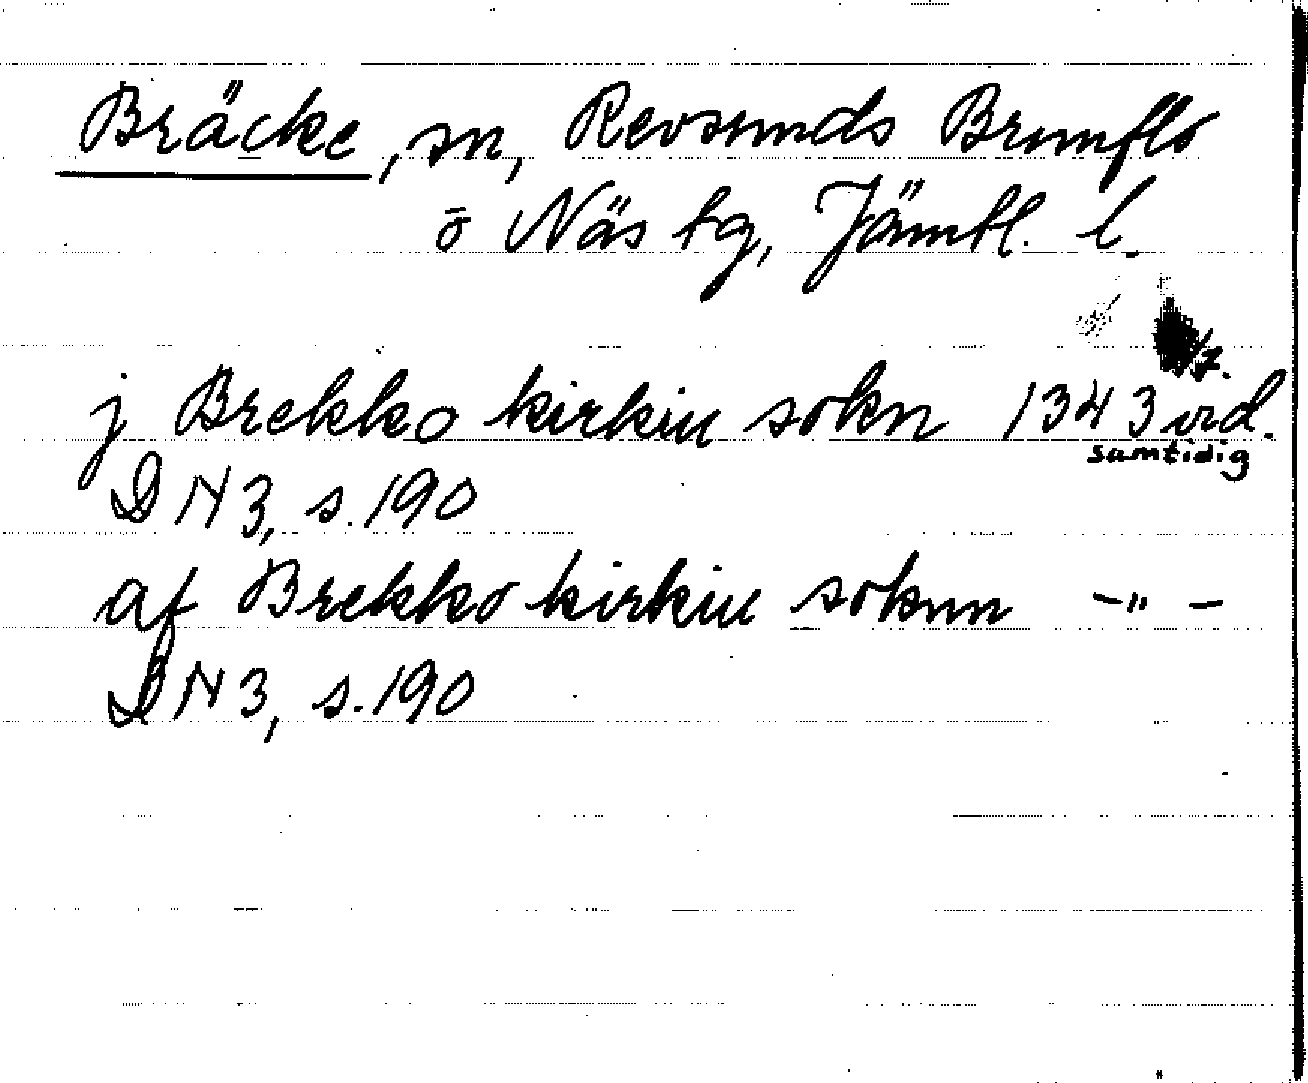 Bräcke, sn, Revsunds Brunflo
ō Näs tg, Jämtl. l.
j Brekko kirkiu sokn 1343 vid.
samtidig
DN 3, s. 190
af Brekko kirkiu soknn -"-
DN 3, s. 190